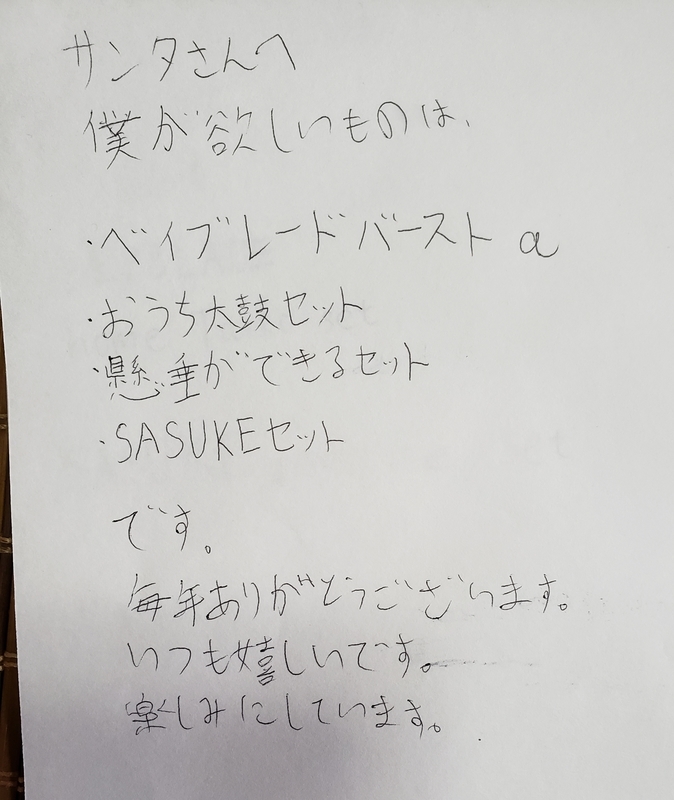 サンタさんへ
僕が欲しいものは、
・ベイブレードバースト a
・おうち太鼓セット
・懸垂ができるセット
・SASUKEセット
です。
毎年ありがとうございます。
いつも嬉しいです。
楽しみにしています。